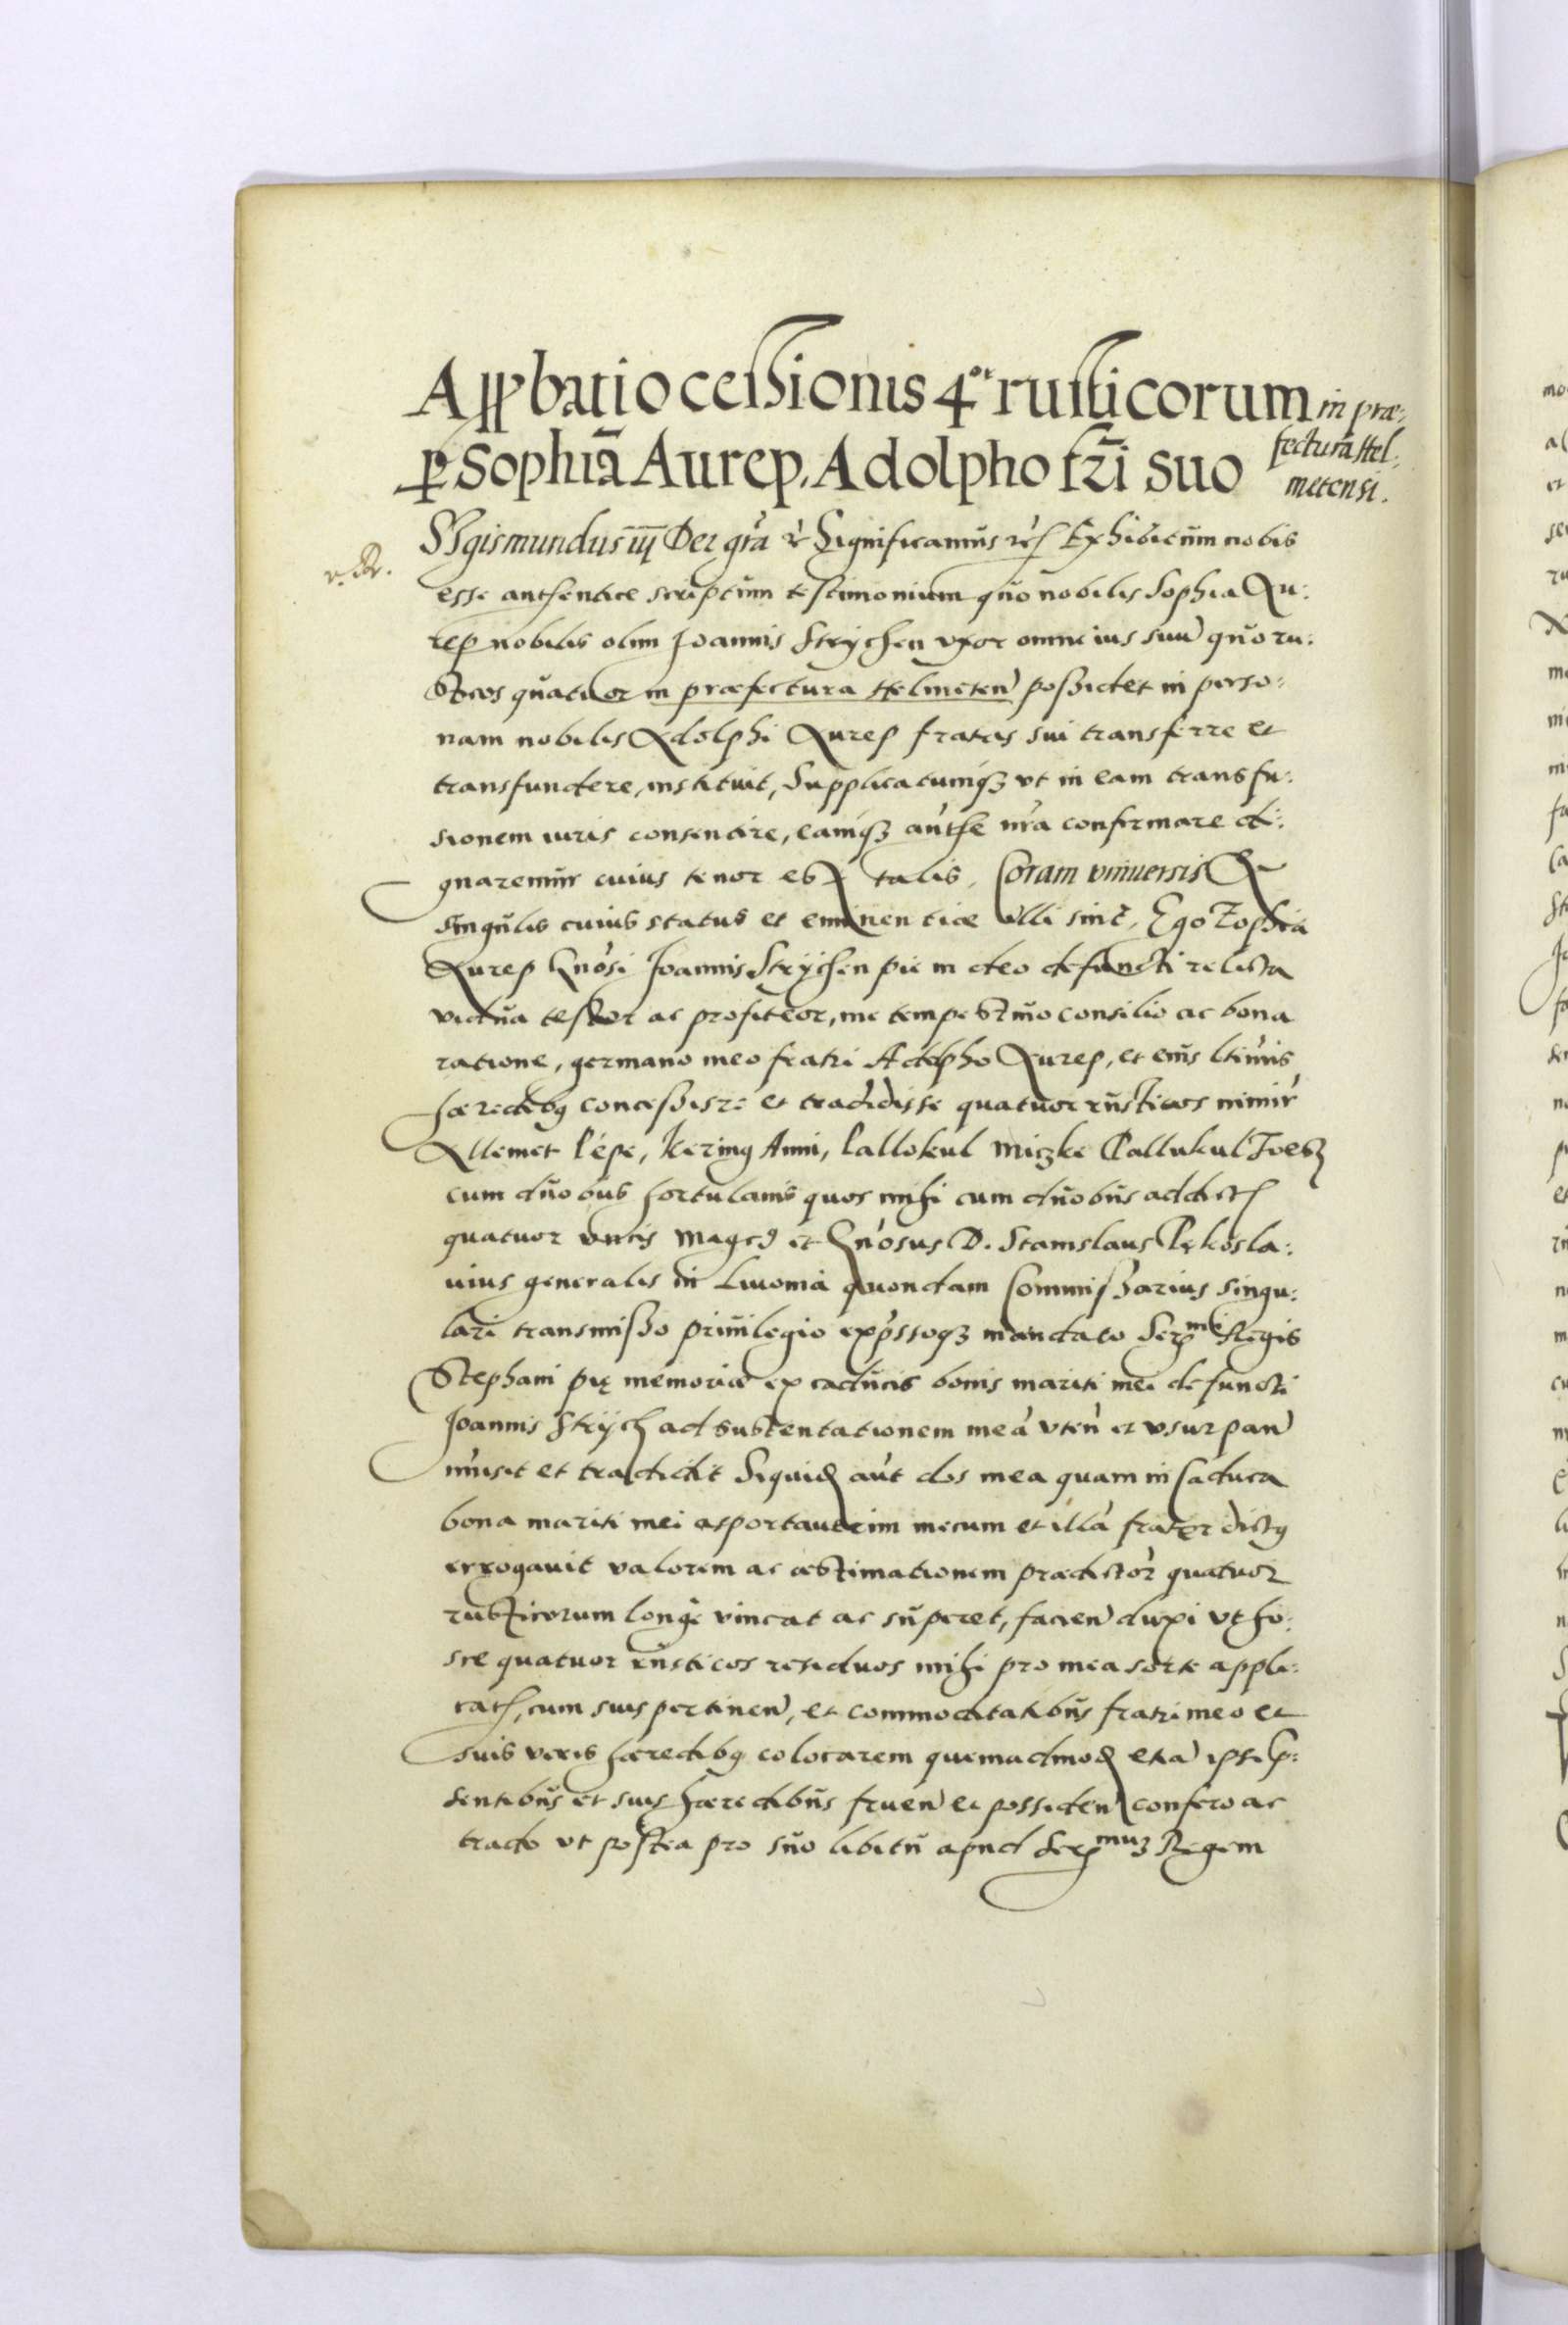 Approbatio cessionis 4or rusticorum in præ:
fecturã Hel:
metensi.
p Sophiã Aurep. Adolpho frĩ suo
Sigismundus iij Dei gr̃a etc̃ Significamus etc̃ Exhibitum nobis
esse authentice scriptum testimonium quo nobilis Sophia Au:
rep nobilis olim Joannis Strychen vxor omne ius suũ quo ru:
sticos quatuor in præfectura Helmeteñ possidet in perso:
nam nobilis Adolphi Aurep fratris sui transferre et
transfundere, instituit, Supplicatumq3 vt in eam transfu:
sionem iuris consentire, eamq3 auth̃e nr̃a confirmare di:
gnaremur cuius tenor est talis. Coram vniuersis &
singulis cuius status et eminentiæ illi sint. Ego Zophia
Aurep Gñosi Joannis Strychen pie in deo defuncti relicta
vidua testor ac profiteor, me tempestiuo consilio ac bona
ratione, germano meo fratri Adolpho Aurep, et eius ltimis
hæredib9 concessisse et tradidisse quatuor rusticos nimir̃
Allemet Pepe, Kering Anni, Pallokul Miczke Pallukul Toesz
cum duobus hortulanis quos mihi cum duobus addict
quatuor vncis Mag et Gñosus D. Stanislaus Pękosla:
uius generalis in Liuonia quondam Commissarius singu:
lari transmisso priuilegio exp̃ssoq3 mandato Ser mi Regis
Stephani pię memoriæ ex caducis bonis mariti mei defuncti
Joannis Strych ad sustentationem meã vteñ et vsurpañ
misit et tradidit Siquid aũt dos mea quam in Caduca
bona mariti mei asportauerim mecum et illã frater dict9
errogauit valorem ac æstimationem prædictor̃ quatuor
rusticorum longe vincat ac superet, facieñ duxi vt ho:
sce quatuor rusticos residuos mihi pro mea sorte appli:
cat, cum suis pertineñ, et commoditatibus fratri meo et
suis veris hæredib9 colocarem quemadmod etiã ipsi p:
sentibus et suis hæredibus frueñ et possideñ confero ac
trado vt postea pro suo libitu apud Ser mu3 Regem